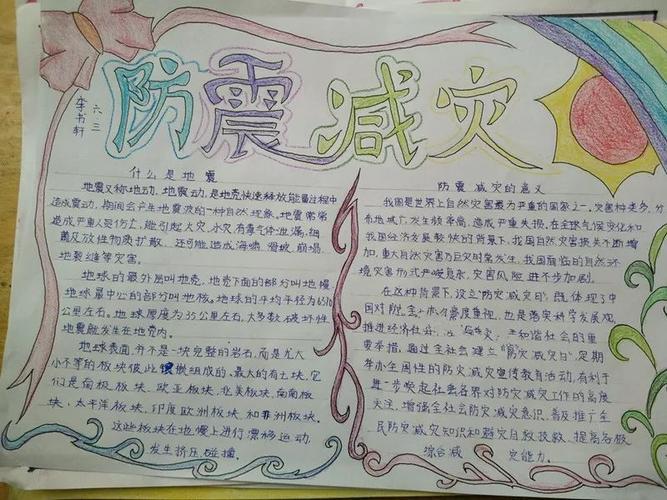 防震减灾
六三
李书轩
什么是地震
地震又称地动、地震动,是地壳快速释放能量过程中
造成震动,期间会产生地震波的一种自然现象。地震常常
造成严重人员伤亡,能引起火灾、水灾、有毒气体泄漏、细
菌及放射性物质扩散、还可能造成海啸、滑坡、崩塌、
地裂缝等灾害。
地球的最外层叫地壳,地壳下面的部分叫地幔
地球最中心的部分叫地核。地球的平均半径为6370
公里左右。地球厚度为35公里左右,大多数破坏性
地震就发生在地壳内。
地球表面,并不是一块完整的岩石,而是尤大
小不等的板块彼此镶嵌组成的,最大的有七块,它
们是南极板块、欧亚板块、北美板块、南南板
块、太平洋板块、印度欧洲板块和非洲板块。
这些板块在地幔上进行漂移运动,
发生挤压,碰撞。
防震减灾的意义
我国是世界上自然灾害最为严重的国家之一,灾害种类多,分
布地域广,发生频率高,造成严重失损,在全球气候变化和
我国经济发展较快的背景下,我国自然灾害损失不断增
加,重大自然灾害乃巨灾时常发生,我国面临的自然环
境灾害形式严峻复杂,灾害风险进一步加剧。
在这种背景下,设立"防灾减灾日",既体现了中
国对防
推进经济社
重要举措,通过全社会建立"防灾减灾日",定期
举办全周性的防灾减灾宣传教育活动,有利于
进一步唤起社会各界对防灾减灾工作的高度
关注,增强全社会防灾减灾意识,普及推广全
民防灾减灾知识和避灾自救技救,提高各级
综合减 灾能力。